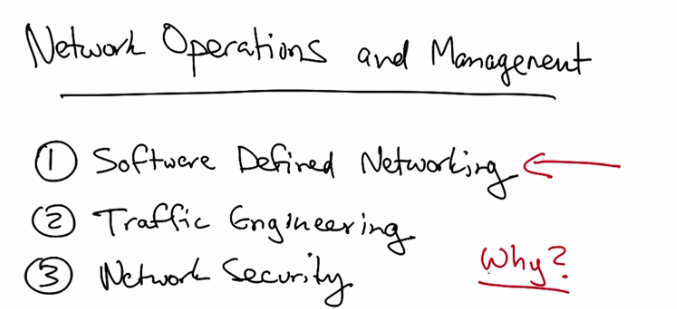 Network Operations and Management
① Software Defined Networking
② Traffic Engineering
③ Network Security
Why?